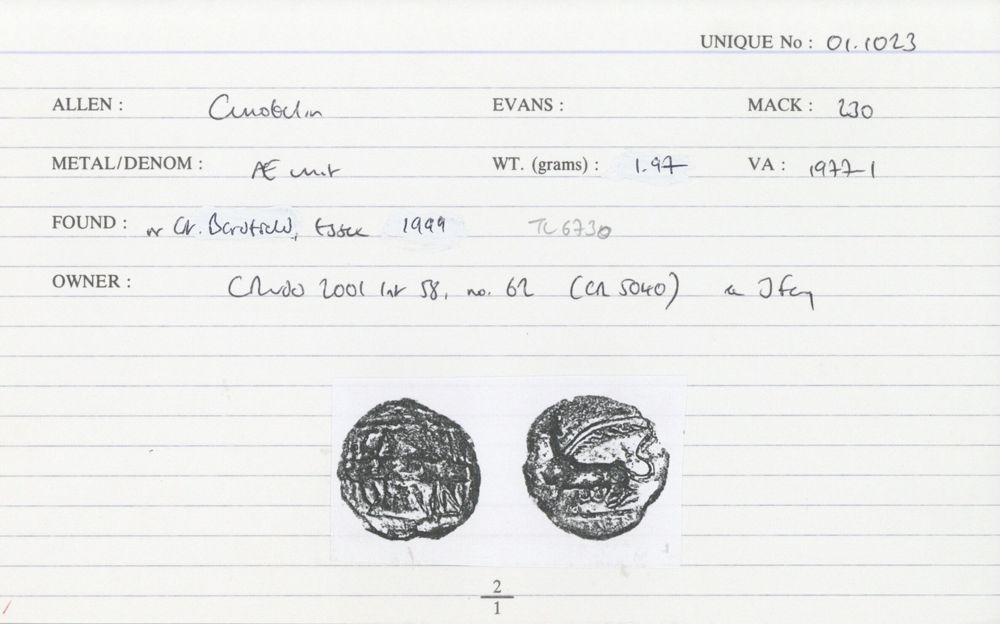 UNIQUE No : 01.1023
ALLEN : Cunobelin EVANS : MACK : 230
METAL/DENOM : Æ unit WT. (grams) : 1.97 VA : 1977-1
FOUND : nr Gt. Bardfield, Essex 1999 TL 6730
OWNER : 2001 List 58, no. 62 (CR 5040)
2
1